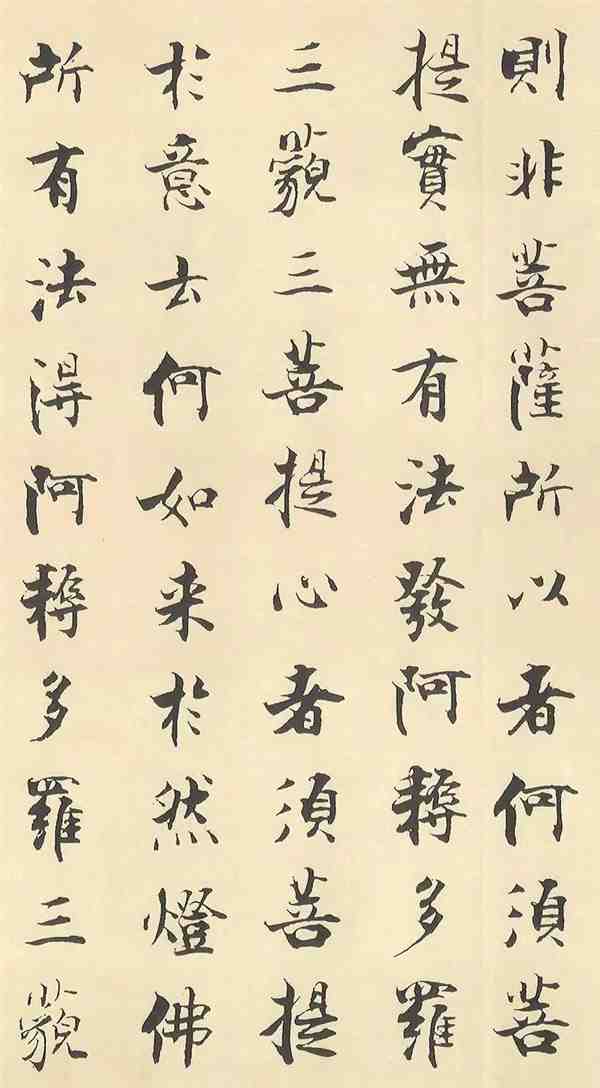 則非菩薩所以者何須菩
提實無有法發阿耨多羅
三藐三菩提心者須菩提
於意云何如来於然燈佛
所有法得阿耨多羅三藐